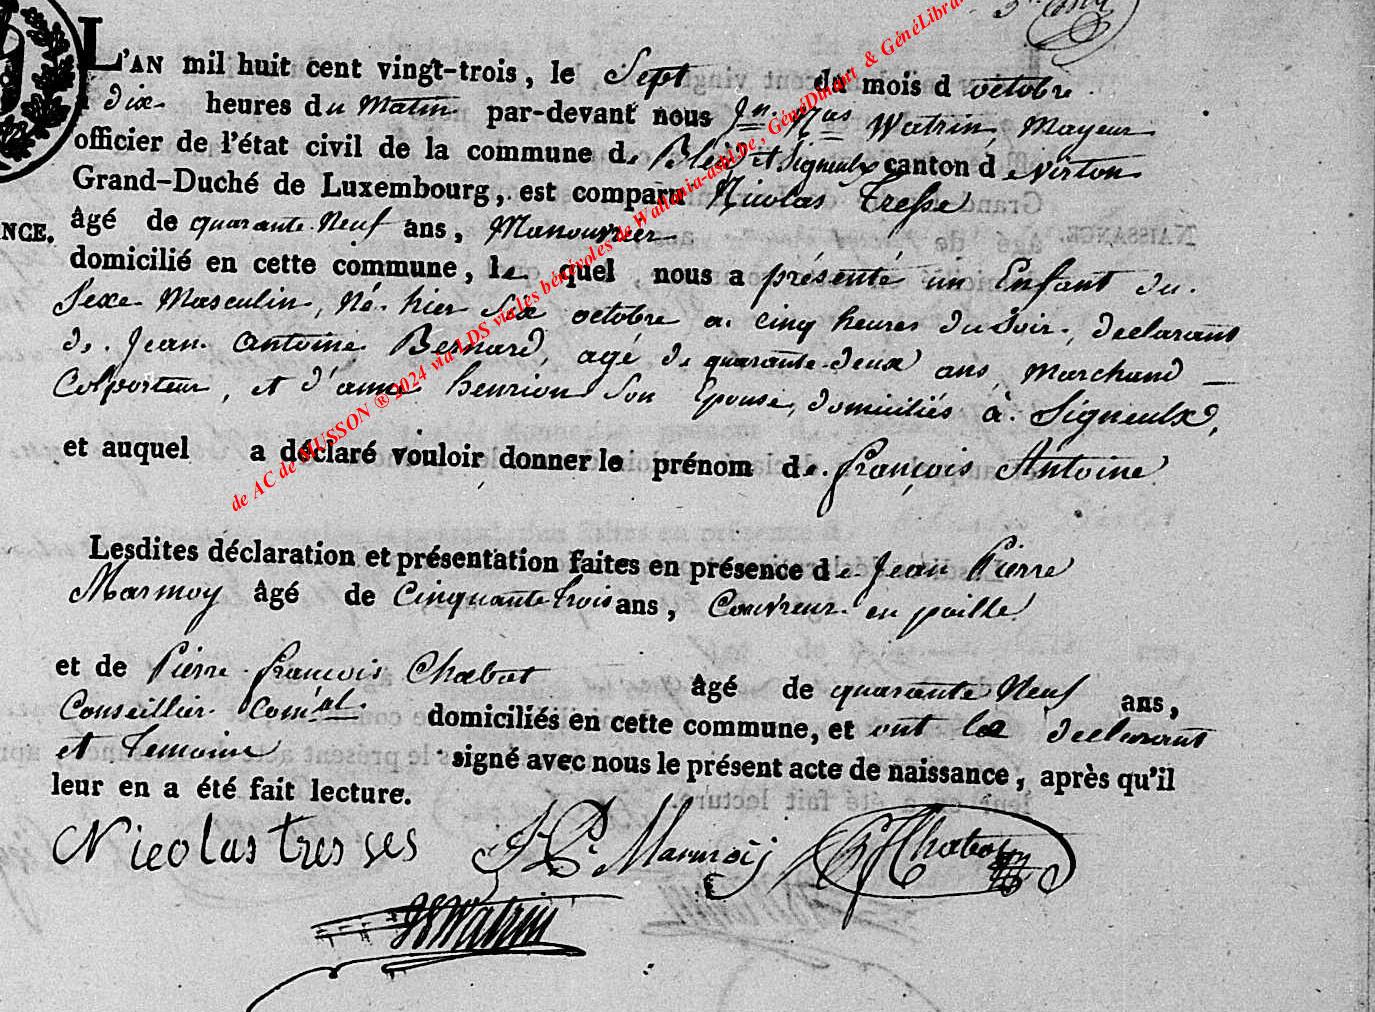 L'AN mil huit cent vingt-trois, le Sept du mois d octobre
à dix heures du Matin par-devant nous Jn. Nas Watrin, Mayeur
officier de l'état civil de la commune de Bleid et Signeulx canton d virton
Grand-Duché de Luxembourg, est comparu Nicolas Tresse
NCE.
âgé de quarante Neuf ans, Manouvrier
domicilié en cette commune, le quel nous a présenté un Enfant du
Sexe Masculin, Né hier Six octobre a cinq heures du Soir, declarant
de Jean Antoine Besnard, agé de quarante-deux ans, Marchand
Colporteur, et d'anne henrion Son Epouse, domiciliés à Signeulx,
et auquel a déclaré vouloir donner le prénom de françois Antoine
Lesdites déclaration et présentation faites en présence de Jean Pierre
Marmoy âgé de Cinquante trois ans, Couvreur en paille
et de Pierre françois Chabot âgé de quarante Neuf ans,
Conseiller Com.al domiciliés en cette commune, et ont les declarant
et temoins signé avec nous le présent acte de naissance, après qu'il
leur en a été fait lecture.
Nicolas tresses JP. Marmoij PF Chabot
Watrin
de AC de MUSSON ® 2024 via LDS via les bénévoles de Wallonia-asbl.be, GénéDinant & GénéLibra